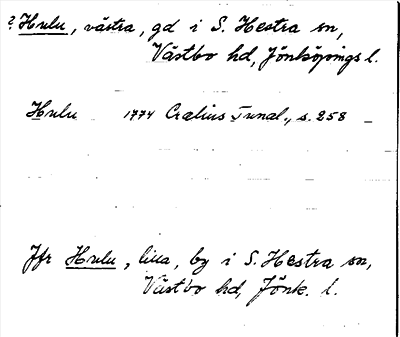 ? Hulu, västra, gd i S. Hestra sn,
Västbo hd, Jönköpings l.
Hulu 1774 Crælius Tunal., s. 258
Jfr Hulu, lilla, by i S. Hestra sn,
Västbo hd, Jönk. l.